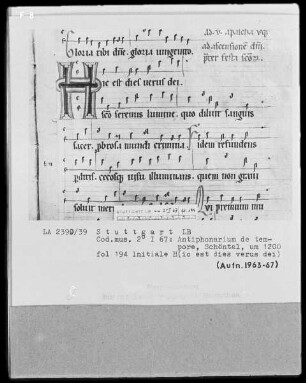 Gloria tibi dñe. gloria unigenito.
Hic est dies verus dei.
sc̄o serenus lumine. quo diluit sanguis
sacer. probrosa mundi crimina. idem refundens
cecosq; visu illuminans. quem non gravi
soluit
LA 2399/39 Stuttgart LB
Cod.mus. 2° I 67: Antiphonarium de tem-
pore, Schöntal, um 1200
fol 194 Initiale H(ic est dies verus dei)
(Aufn. 1963-67)